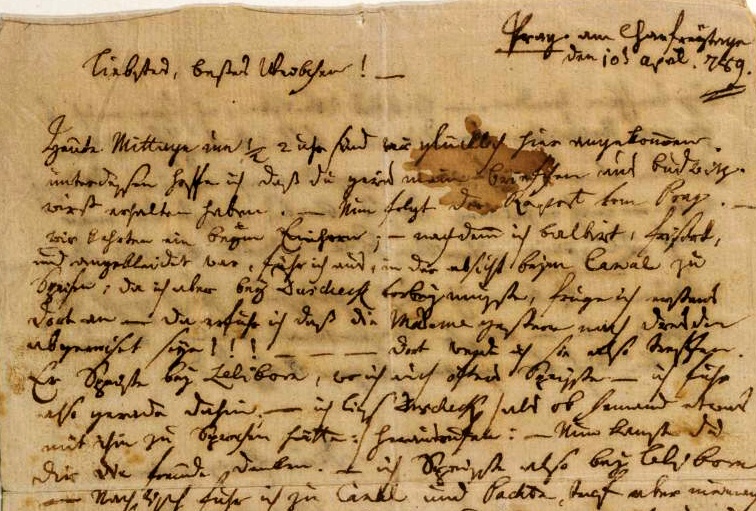 Prag am Charfreytage
den 10t April. 789.
Liebstes, bestes Weibchen! —
Heute Mittags um ½ 2 uhr sind wir glücklich hier angekommen.
unterdessen hoffe ich daß du gewis mein briefchen aus Budwitz
wirst erhalten haben. — Nun folgt der Rapport von Prag. —
wir kehrten ein beym Einhorn; — nachdemm ich balbirt, frisirt,
und angekleidet war, fuhr ich aus, in der absicht beym Canal zu
Speisen; da ich aber bey Duscheck vorbey musste, frug ich erstens
dort an — da erfuhr ich daß die Madame gestern nach dresden
abgereiset seye!!! — — — dort werde ich sie also treffen.
Er Speiste bey Leliborn, wo ich auch öfters Speiste — ich fuhr
also gerade dahin. — ich liess Duscheck (als ob Jemand etwas
mit ihm zu Sprechen hätte:) herausrufen: — Nun kanst du
dir die freude denken. — ich Speiste also bey Leliborn
— Nach tisch fuhr ich zu Canal und Pachta, traf aber niemand